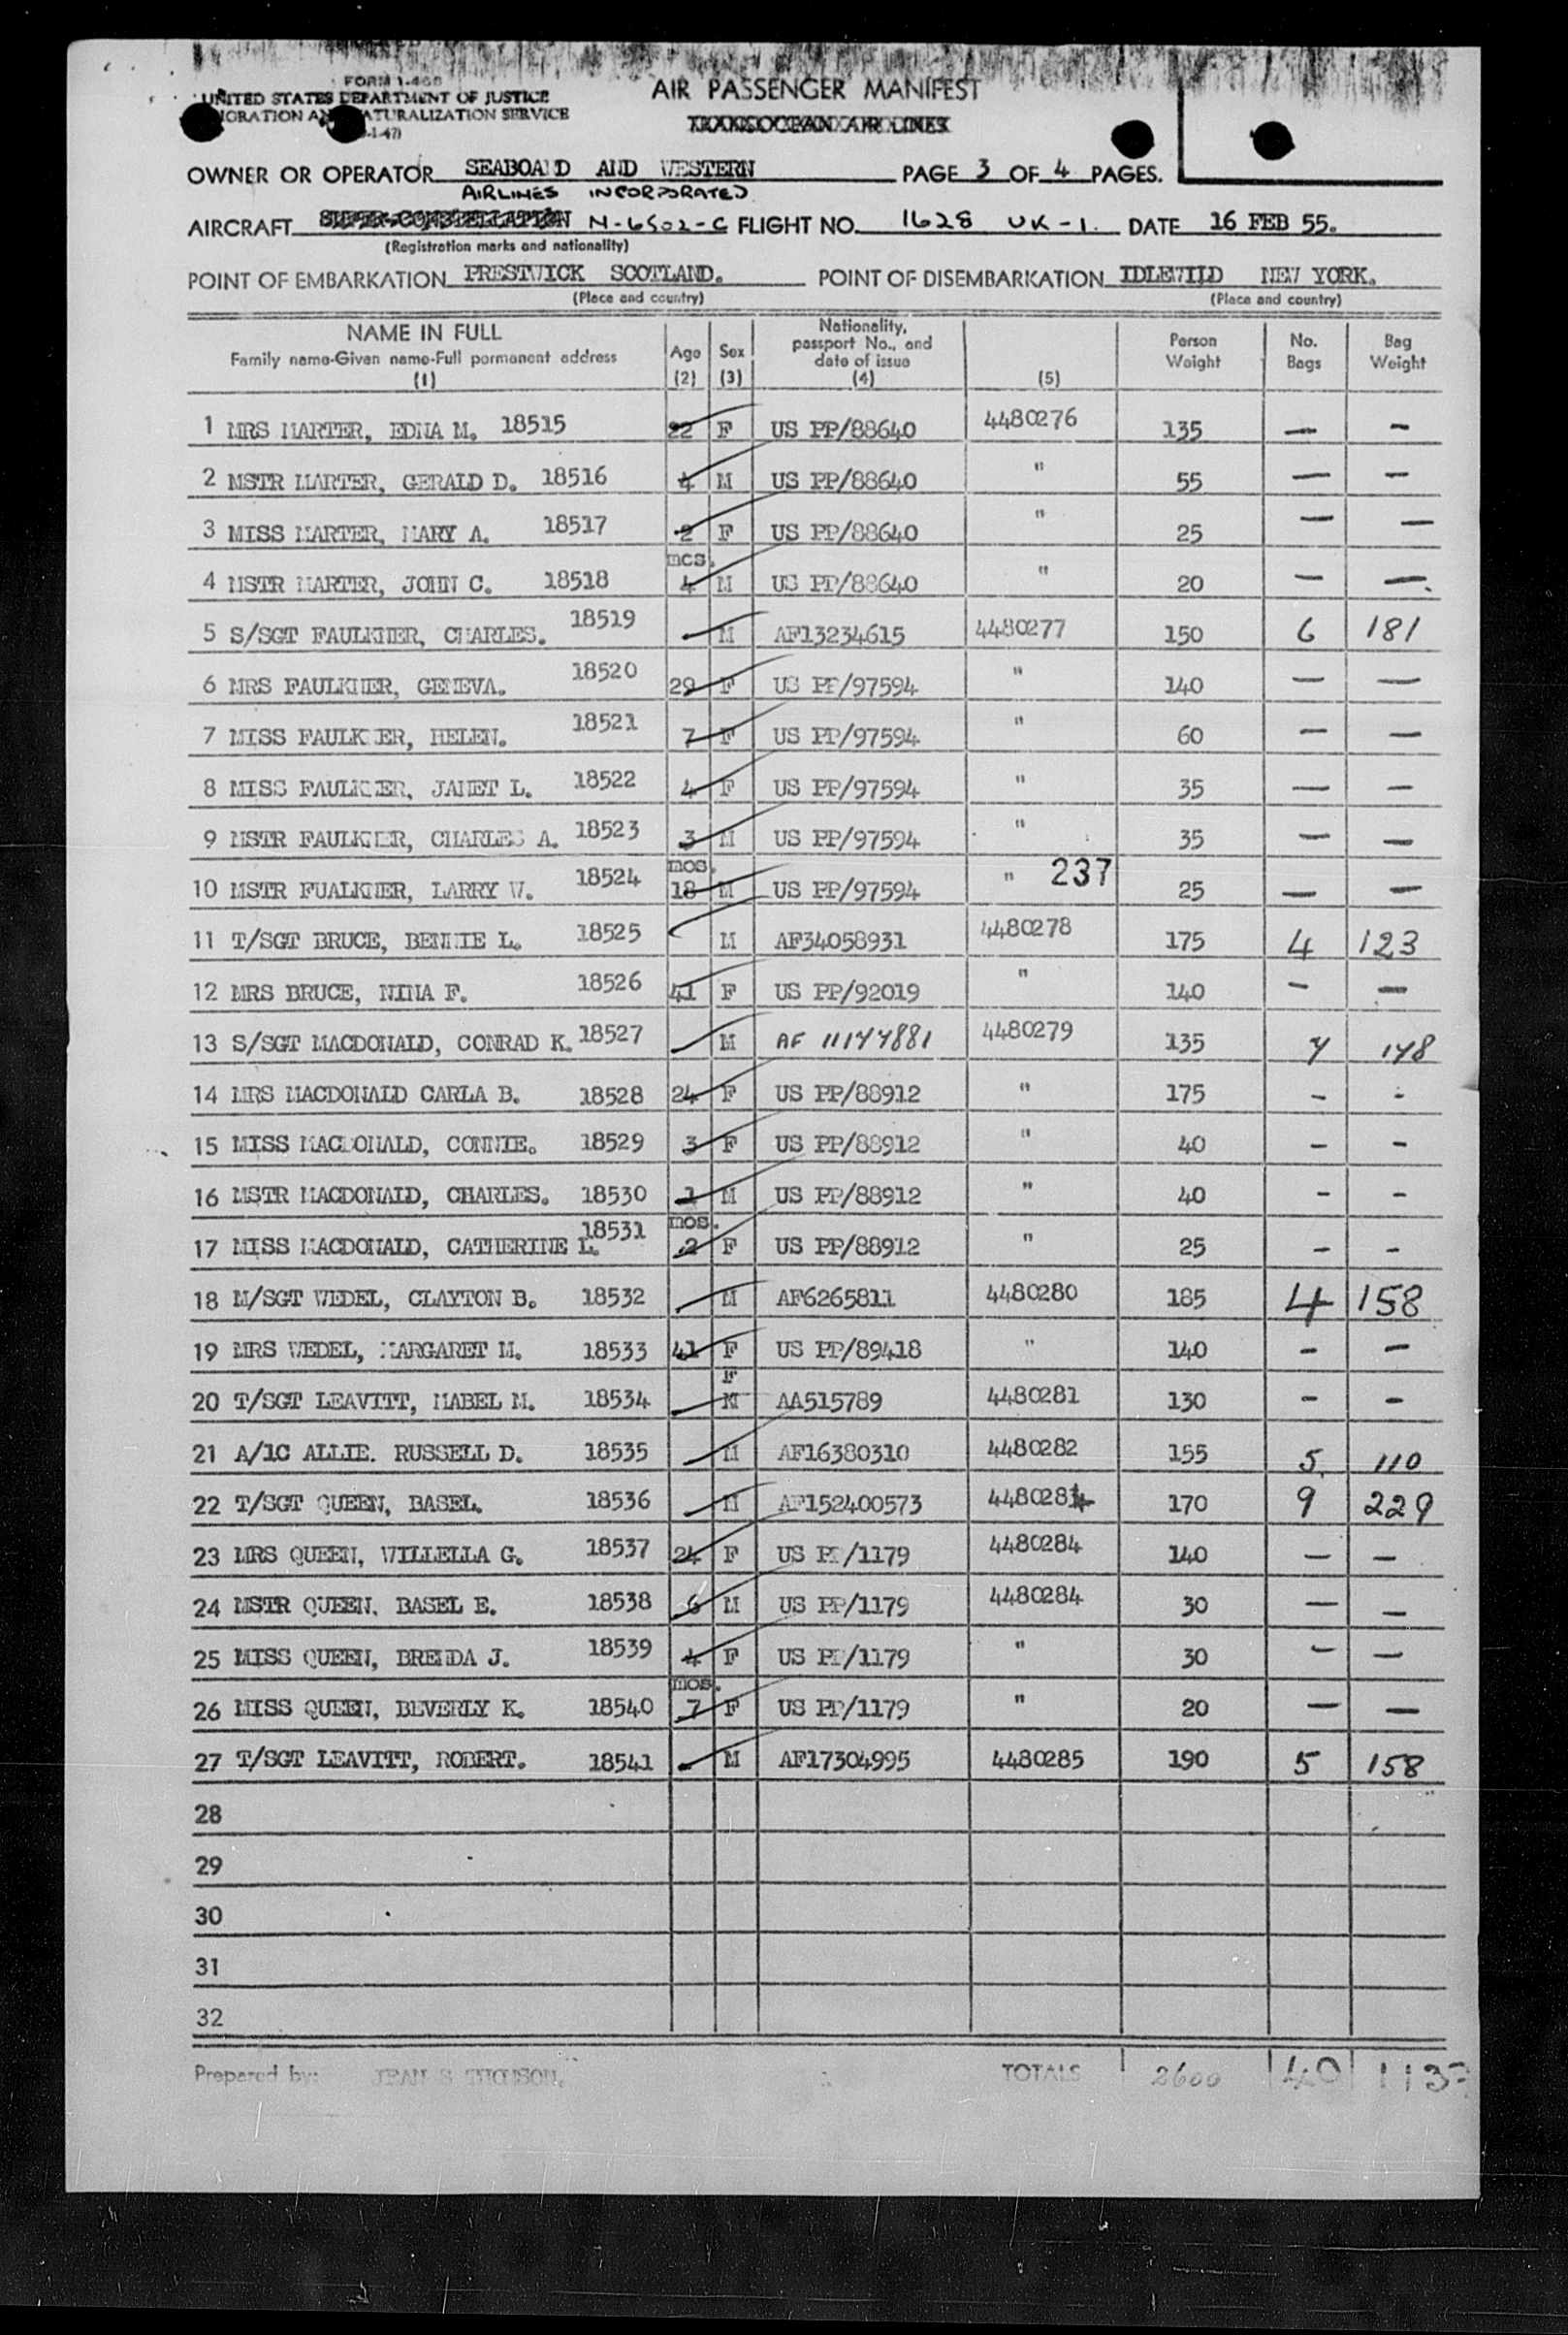 FORM I-466
UNITED STATES DEPARTMENT OF JUSTICE
AIR PASSENGER MANIFEST
NATURALIZATION SERVICE
TRANSOCEAN AIR LINES
OWNER OR OPERATOR SEABOARD AND WESTERN PAGE 3 OF 4 PAGES.
AIRLINES INCORPORATED
AIRCRAFT SUPER-CONSTELLATION N-6502-C FLIGHT NO. 1628 UK-1. DATE 16 FEB 55.
(Registration marks and nationality)
POINT OF EMBARKATION PRESTWICK SCOTLAND. POINT OF DISEMBARKATION IDLEWILD NEW YORK.
(Place and country) (Place and country)
NAME IN FULL Nationality,
Family name-Given name-Full permanent address Age Sex passport No., and Person No. Bag
date of issue Weight Bags Weight
(1) (2) (3) (4) (5)
1 MRS MARTER, EDNA M. 18515 22 F US PP/88640 4480276 135 — —
2 MSTR MARTER, GERALD D. 18516 4 M US PP/88640 " 55 — —
3 MISS MARTER, MARY A. 18517 2 F US PP/88640 " 25 — —
mos.
4 MSTR MARTER, JOHN C. 18518 4 M US PP/88640 " 20 — —
5 S/SGT FAULKNER, CHARLES. 18519 M AF13234615 4480277 150 6 181
6 MRS FAULKNER, GENEVA. 18520 29 F US PP/97594 " 140 — —
7 MISS FAULKNER, HELEN. 18521 7 F US PP/97594 " 60 — —
8 MISS FAULKNER, JANET L. 18522 4 F US PP/97594 " 35 — —
9 MSTR FAULKNER, CHARLES A. 18523 3 M US PP/97594 " 35 — —
mos.
10 MSTR FUALKNER, LARRY W. 18524 18 M US PP/97594 " 237 25 — —
11 T/SGT BRUCE, BENNIE L. 18525 M AF34058931 4480278 175 4 123
12 MRS BRUCE, NINA F. 18526 41 F US PP/92019 " 140 - —
13 S/SGT MACDONALD, CONRAD K. 18527 M AF 11147881 4480279 135 7 178
14 MRS MACDONALD CARLA B. 18528 24 F US PP/88912 " 175 - -
15 MISS MACDONALD, CONNIE. 18529 3 F US PP/88912 " 40 - -
16 MSTR MACDONALD, CHARLES. 18530 1 M US PP/88912 " 40 - -
mos.
17 MISS MACDONALD, CATHERINE L. 18531 2 F US PP/88912 " 25 - -
18 M/SGT WEDEL, CLAYTON B. 18532 M AF6265811 4480280 185 4 158
19 MRS WEDEL, MARGARET M. 18533 41 F US PP/89418 " 140 - -
F
20 T/SGT LEAVITT, MABEL M. 18534 M AA515789 4480281 130 - -
21 A/1C ALLIE. RUSSELL D. 18535 M AF16380310 4480282 155 5 110
22 T/SGT QUEEN, BASEL. 18536 M AF152400573 4480284 170 9 229
23 MRS QUEEN, WILLELLA G. 18537 24 F US PP/1179 4480284 140 — —
24 MSTR QUEEN. BASEL E. 18538 6 M US PP/1179 4480284 30 — —
25 MISS QUEEN, BRENDA J. 18539 4 F US PP/1179 " 30 - —
mos.
26 MISS QUEEN, BEVERLY K. 18540 7 F US PP/1179 " 20 — —
27 T/SGT LEAVITT, ROBERT. 18541 M AF17304995 4480285 190 5 158
28
29
30
31
32
Prepared by: JEAN S THOMSON. TOTALS 2600 40 1137